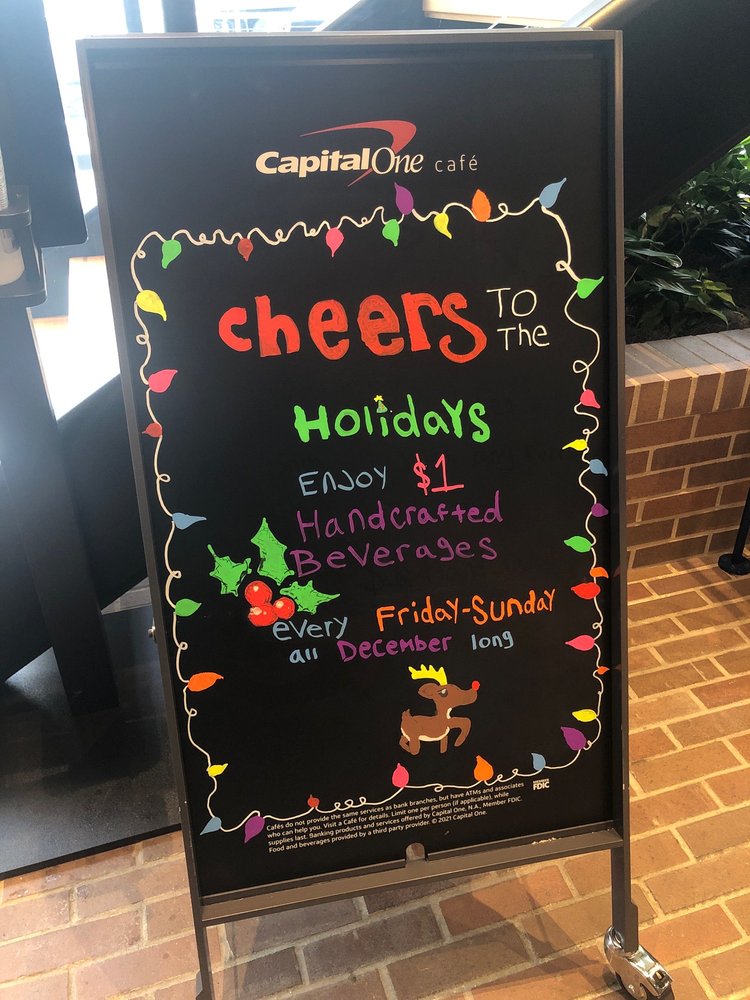 CapitalOne café
cheers TO The
Holidays
ENJOY $1
Handcrafted
Beverages
every Friday-Sunday
all December long
MEMBER FDIC
Cafés do not provide the same services as bank branches, but have ATMs and associates
who can help you. Visit a Café for details. Limit one per person (if applicable), while
supplies last. Banking products and services offered by Capital One, N.A., Member FDIC.
Food and beverages provided by a third party provider. © 2021 Capital One.